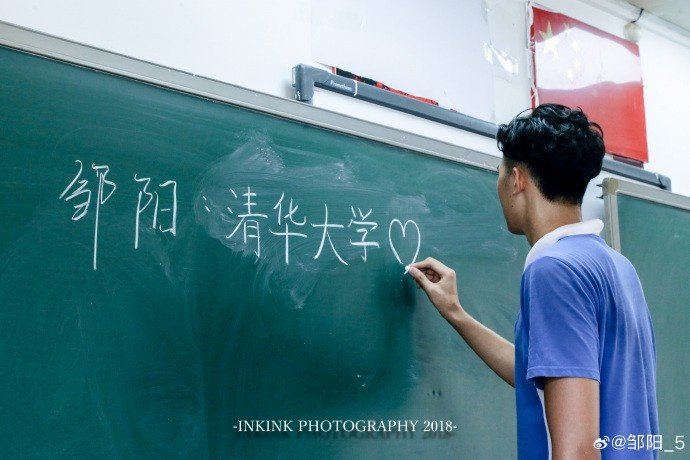 Promethean
邹阳：清华大学♡
-INKINK PHOTOGRAPHY 2018-
@邹阳_5